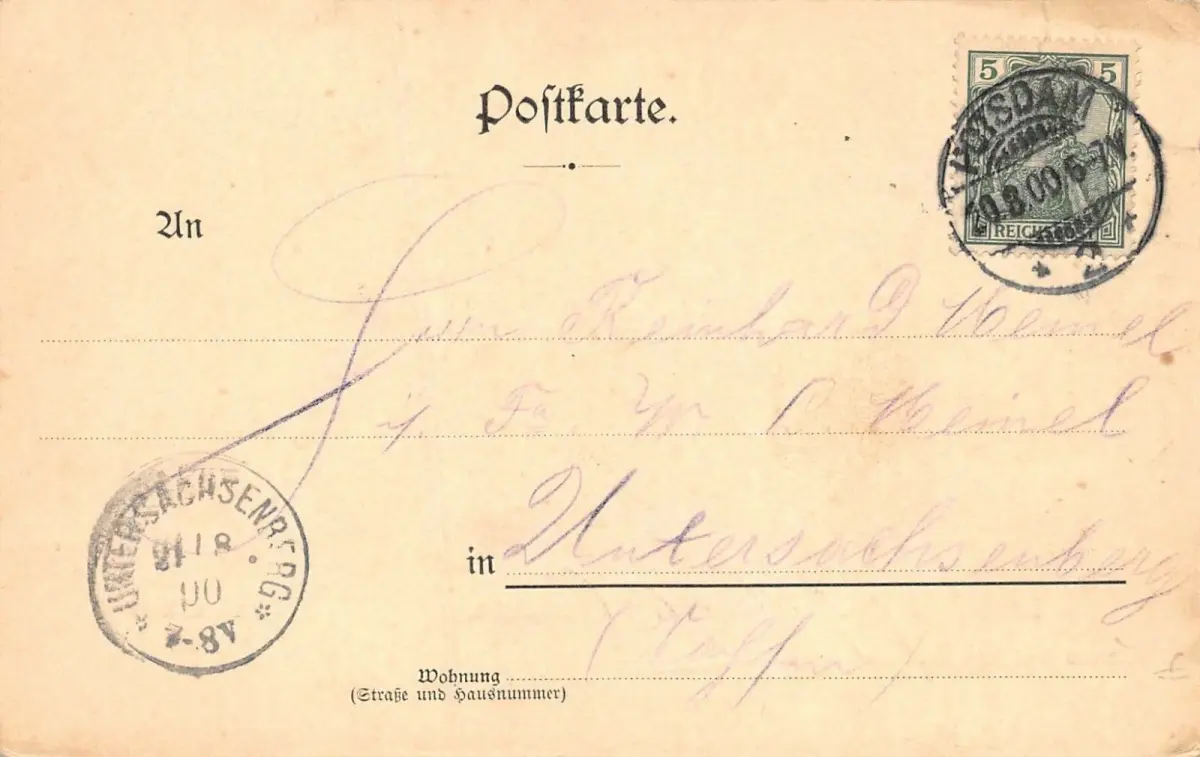 Postkarte.
5 5
POTSDAM
20.8.00.6-7N.
* 2 *
REICHSPOST
An
Herrn Reinhard Meinel
i. Fa. W. L. Meinel
in Untersachsenberg
* UNTERSACHSENBERG *
21 / 8
00
7-8V
Wohnung
(Straße und Hausnummer)